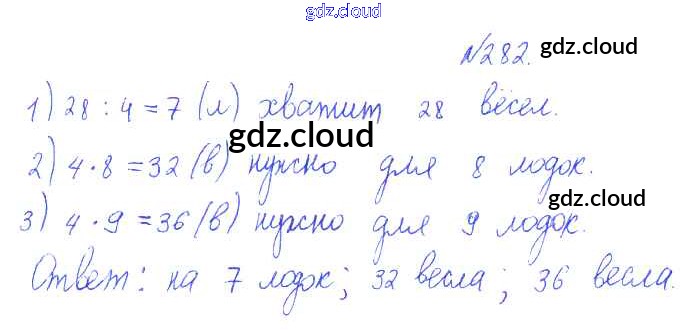 gdz.cloud
№282. gdz.cloud
1) 28 : 4 = 7 (л) хватит 28 вёсел.
gdz.cloud
2) 4 · 8 = 32 (в) нужно для 8 лодок.
gdz.cloud
3) 4 · 9 = 36 (в) нужно для 9 лодок.
Ответ: на 7 лодок; 32 весла; 36 весла.
gdz.cloud